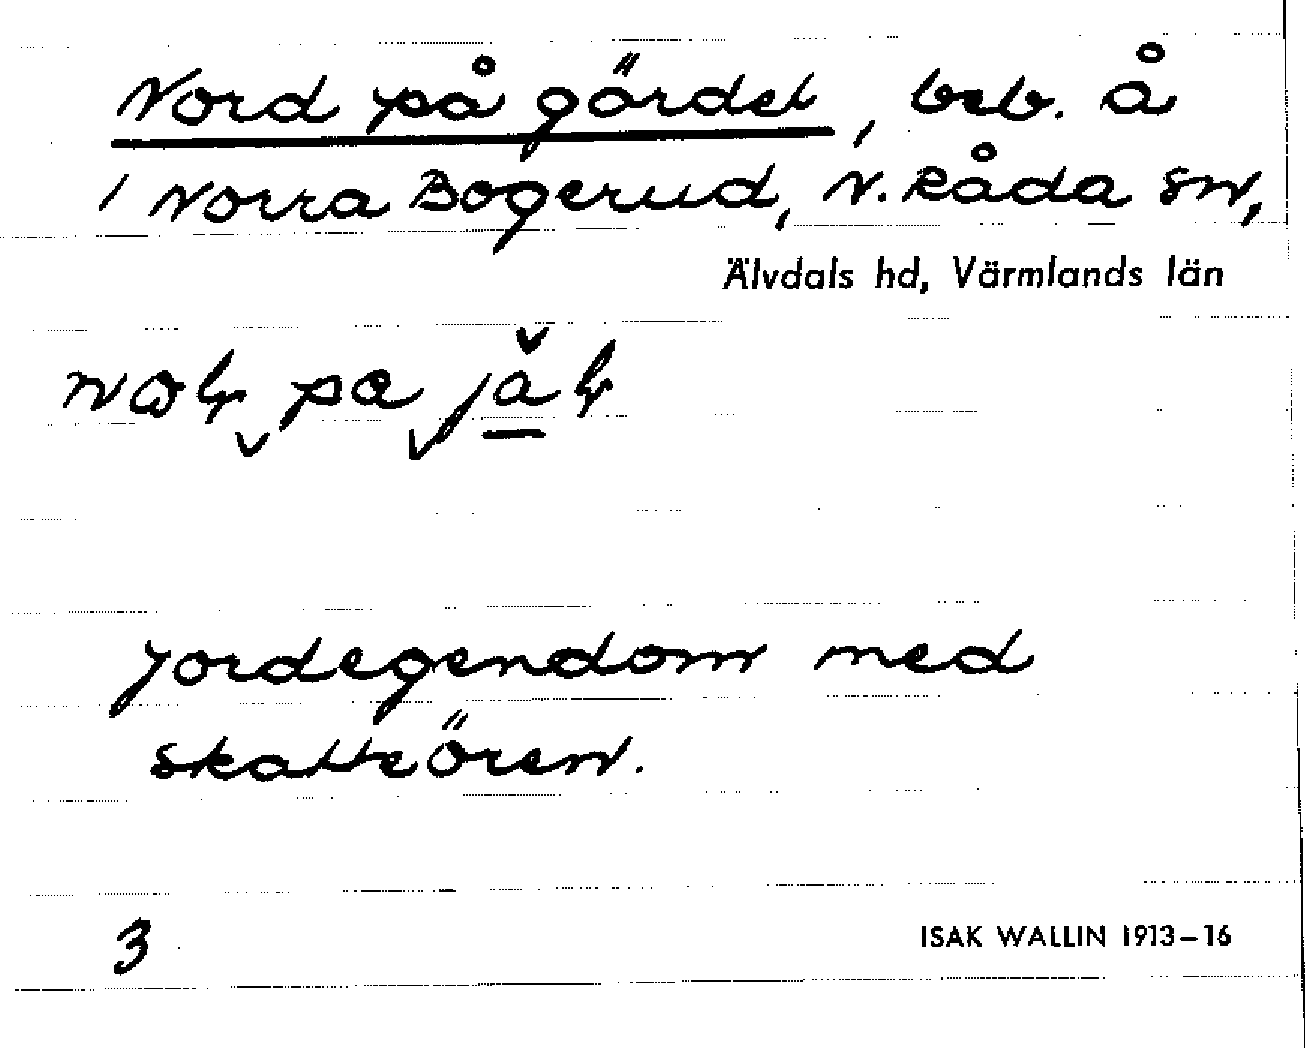 Nord på gördet, beb. å
1 Norra Bogerud, N. Råda sn,
Älvdals hd, Värmlands län
pa
jordegendom med
skatteören.
3
ISAK WALLIN 1913–16